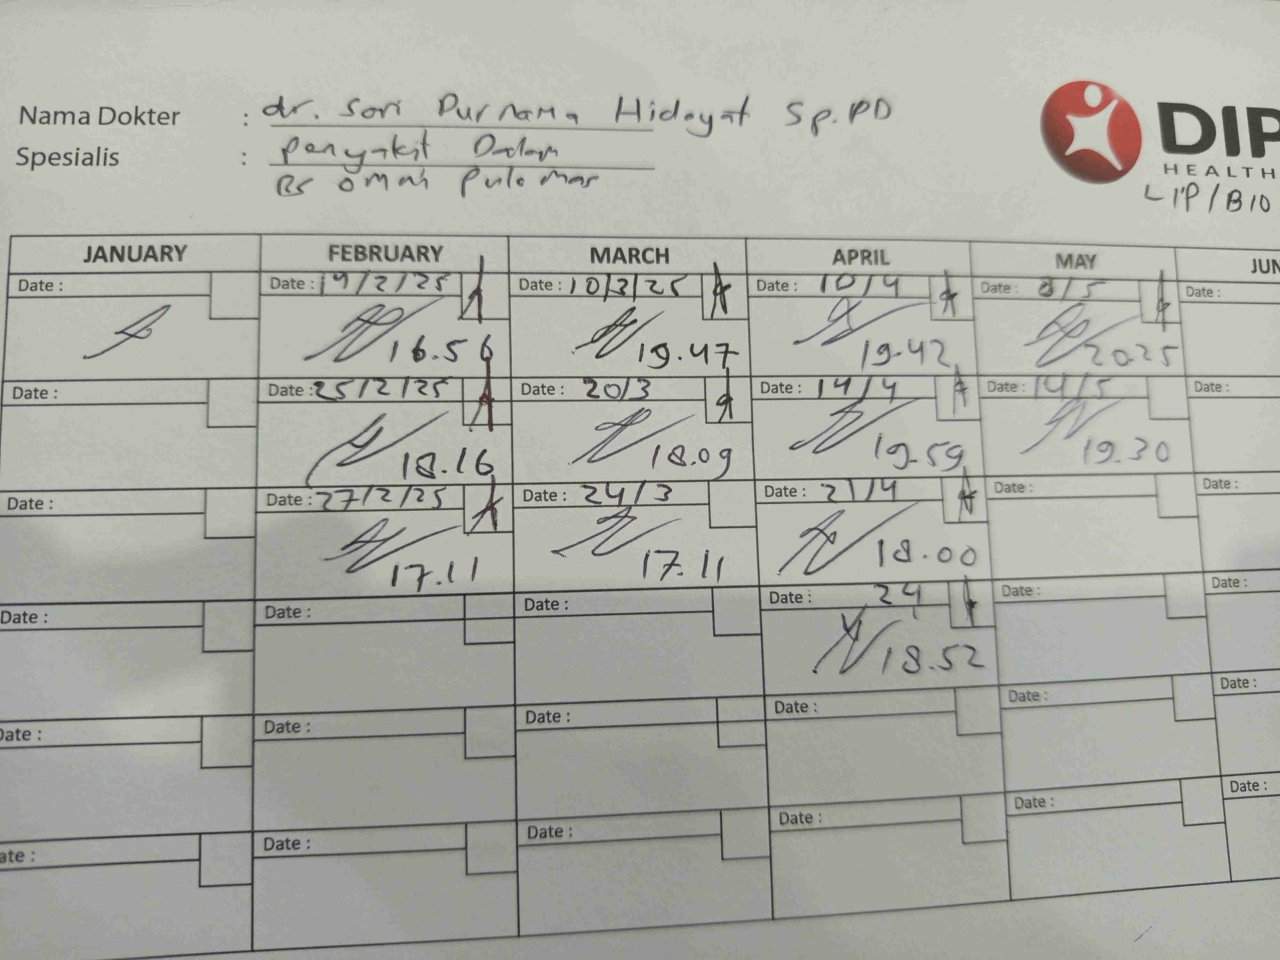 Nama Dokter : dr. Sori Purnama Hidayat Sp.PD
Spesialis : Penyakit Dalam
RS Omni Pulo Mas
DIP
HEALTH
LIP/BIO
JANUARY FEBRUARY MARCH APRIL MAY JUN
Date : Date : 19/2/25 Date : 10/3/25 Date : 10/4 Date : 8/5 Date :
16.56 19.47 19.42 20.25
Date : Date : 25/2/25 Date : 20/3 Date : 14/4 Date : 14/5 Date :
18.16 18.09 19.59 19.30
Date : Date : 27/2/25 Date : 24/3 Date : 21/4 Date : Date :
17.11 17.11 18.00
Date : Date : Date : Date : 24 Date : Date :
18.52
Date : Date : Date : Date : Date : Date :
ate : Date : Date : Date : Date : Date :